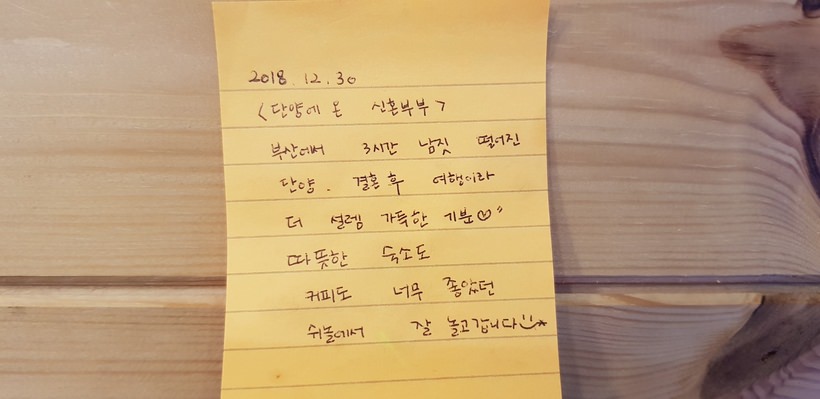 2018. 12. 30
<단양에 온 신혼부부>
부산에서 3시간 남짓 떨어진
단양. 결혼 후 여행이라
더 설렘 가득한 기분
따뜻한 숙소도
커피도 너무 좋았던
쉬놀에서 잘 놀고갑니다